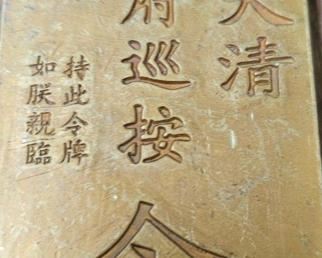 大清
府巡按
令
持此令牌
如朕親臨